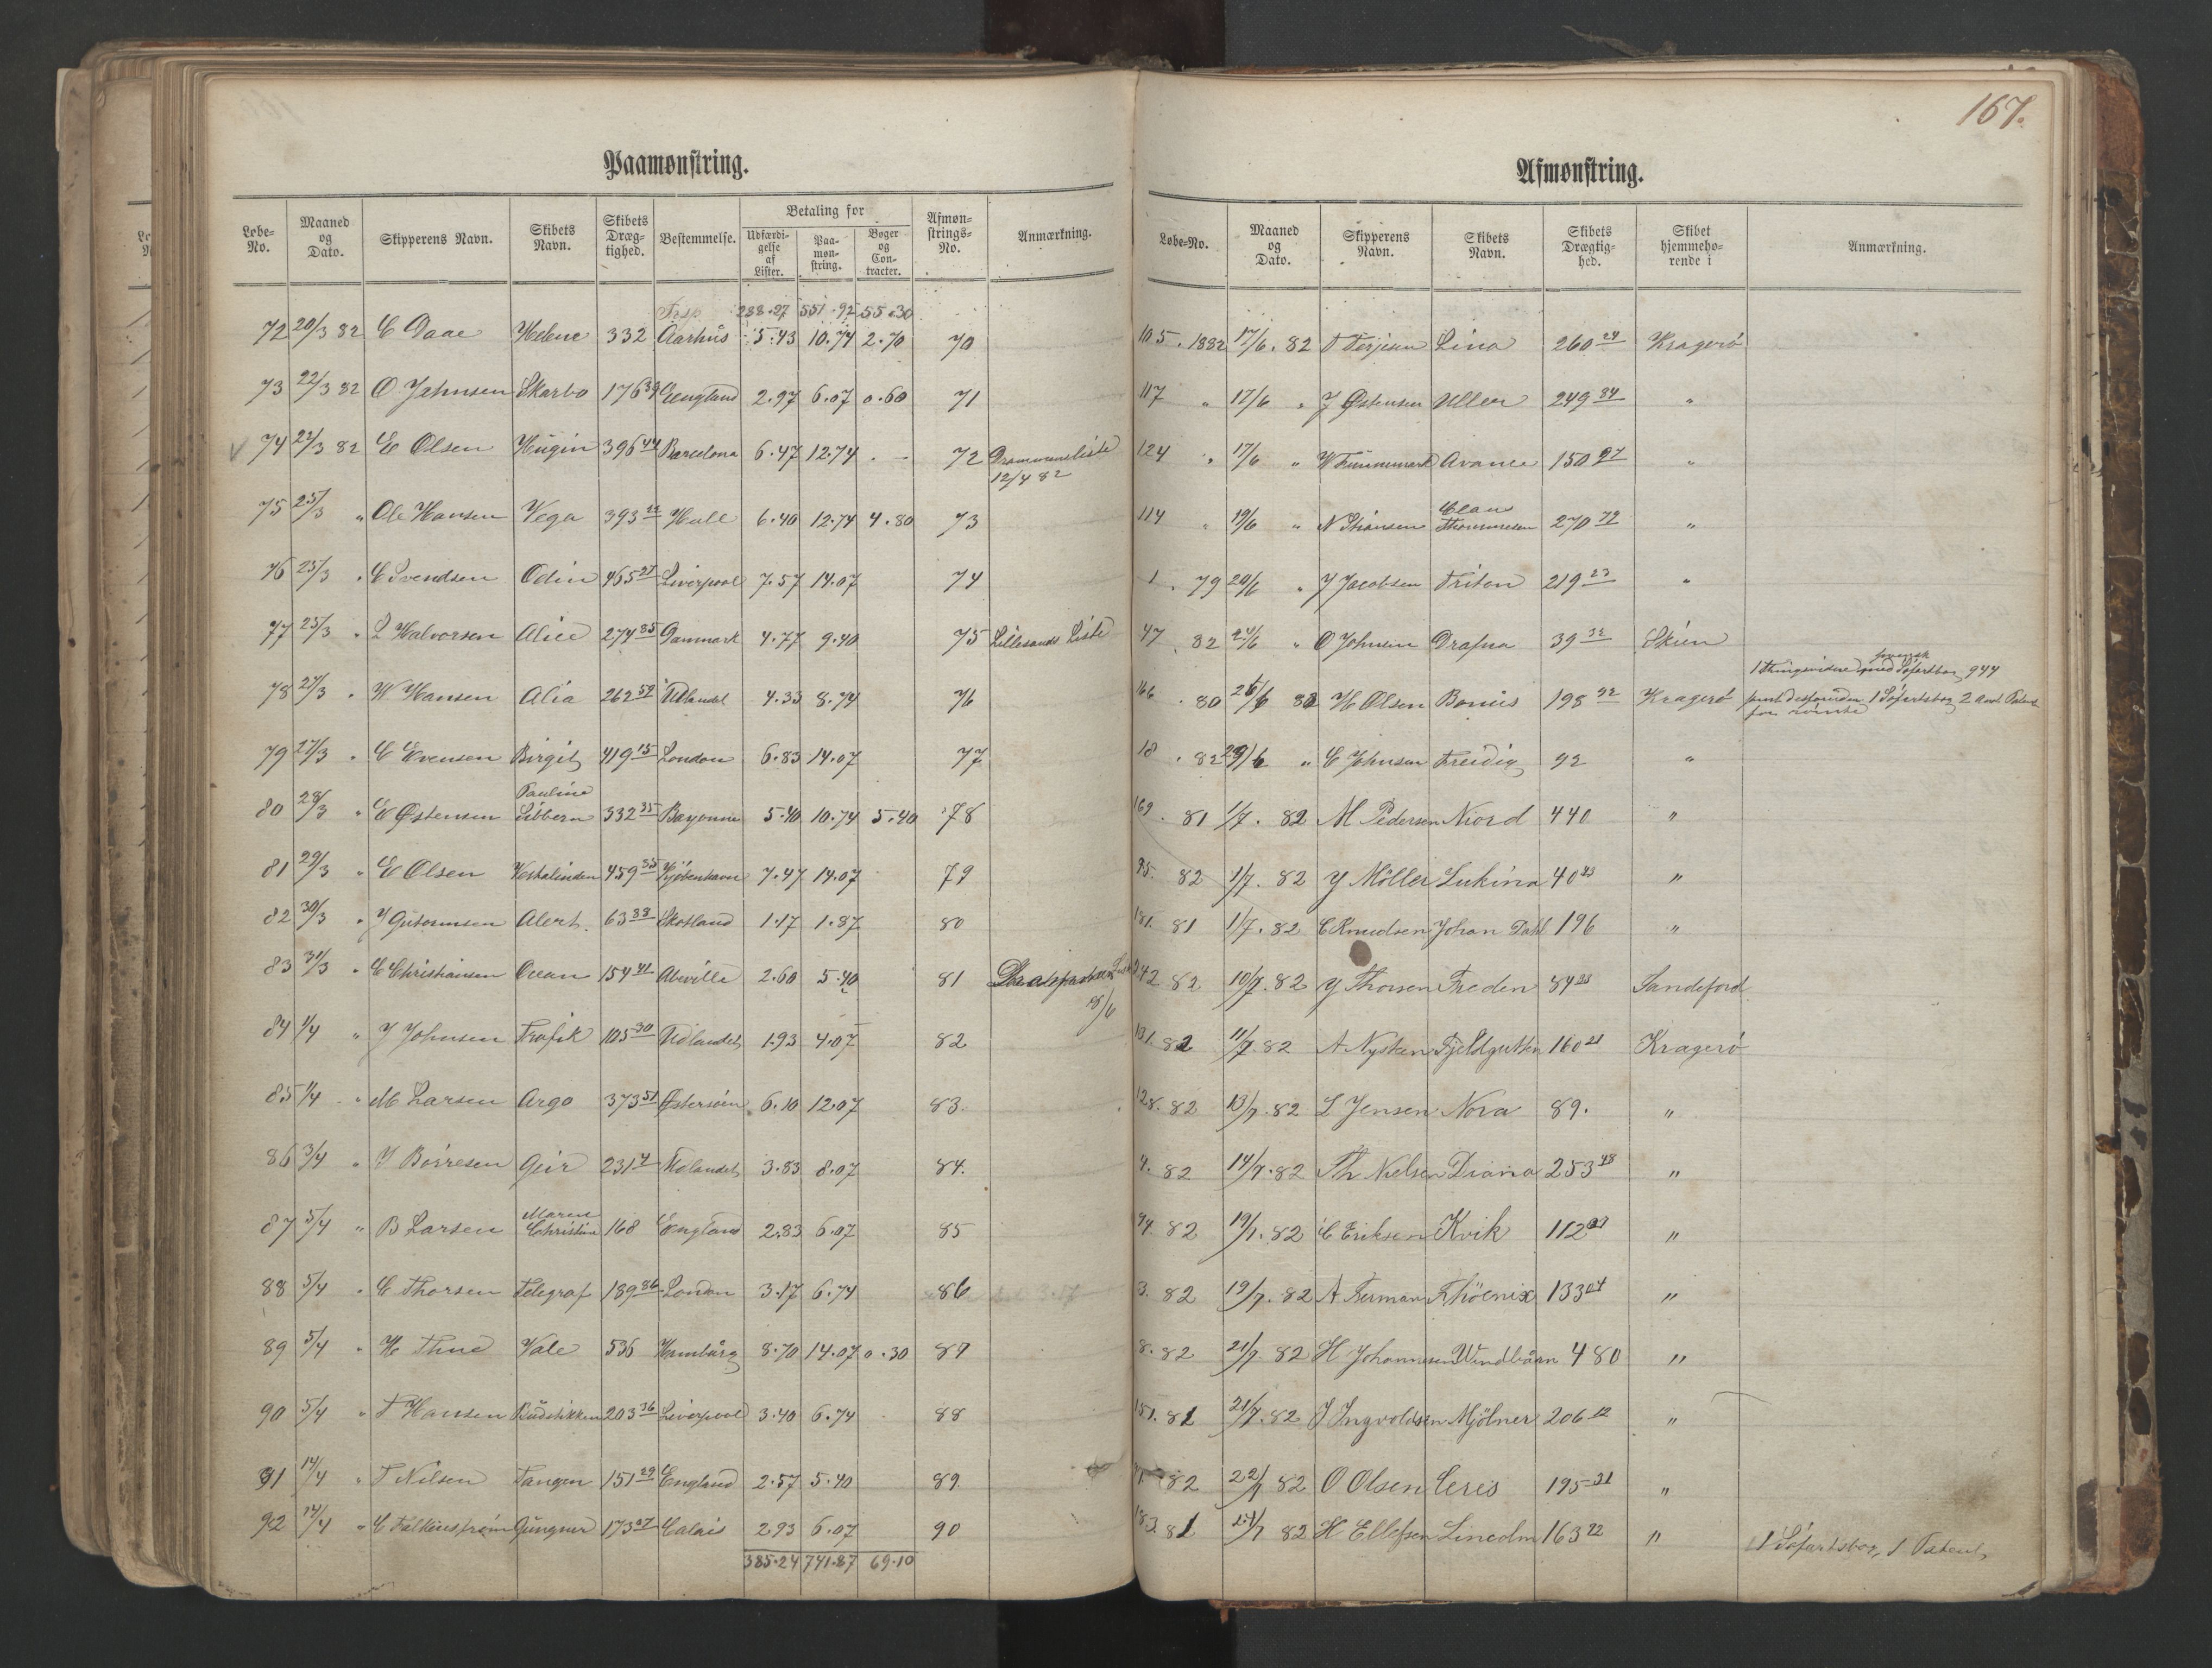 167.
Paamønstring.
Løbe-No. Maaned og Dato. Skipperens Navn. Skibets Navn. Skibets Dræg-tighed. Bestemmelse. Betaling for Udfærdi-gelse af Lister. Paa-møn-string. Bøger og Con-tracter. Afmøn-strings-No. Anmærkning.
288.27 551.92 55.30
72 20/3 82 C Daae Helene 332 Aarhus 5.43 10.74 2.70 70
73 22/3 82 O Jahnsen Skarbo 176 39 England 2.97 6.07 0.60 71
74 22/3 82 E Olsen Hugin 396 44 Barcelona 6.47 12.74 . - 72 Drammensliste
12/4 82
75 25/3 " Ole Hansen Vega 393 Hull 6.40 12.74 4.80 73
76 25/3 " C Svendsen Odin 465 27 Liverpool 7.57 14.07 74
77 25/3 " L Halvorsen Alice 274 85 Danmark 4.77 9.40 75 Lillesands Liste
78 27/3 " W Hansen Alia 262 59 Udlandet 4.33 8.74 76
79 27/3 " C Evensen Birgit 419 15 London 6.83 14.07 77
Pauline
80 28/3 " E Østensen Sibbern 332 35 Bayonne 5.40 10.74 5.40 78
81 29/3 " E Olsen Vestalinden 459 35 Kjøbenhavn 7.47 14.07 79
82 30/3 " J Gutormsen Alert. 63 88 Skotland 1.17 1.87 80
83 31/3 " C Christiansen Ocean 154 41 Abeville 2.60 5.40 81
18/6
84 1/4 " J Johnsen Trafik 105 30 Udlandet 1.93 4.07 82
85 1/4 " M Larsen Argo 373 51 Østersøen 6.10 12.07 83.
86 3/4 " J Børresen Geir 231 4 Udlandet 3.83 8.07 84.
Maren
87 5/4 " B Larsen Christine 168 England 2.83 6.07 85
88 5/4 " C Thorsen Telegraf 189 86 London 3.17 6.74 86
89 5/4 " H Thue Vale 536 Hamburg 8.70 14.07 0.30 87
90 5/4 " T Hansen Budstikken 203 36 Liverpool 3.40 6.74 88
91 14/4 " T Nilsen Tangen 151 29 England 2.57 5.40 89.
92 14/4 " C Falkenstrøm Gungner 173 27 Calais 2.93 6.07 90
385.24 741.87 69.10
Afmønstring.
Løbe-No. Maaned og Dato. Skipperens Navn. Skibets Navn. Skibets Drægtig-hed. Skibet hjemmehø-rende i Anmærkning.
105. 1882 17/6. 82 T Terjesen Lina 260 24 Kragerö
117 " 17/6 " J Østensen Uller 249 84 "
124 " 17/6 " W Tünnemark Avance 150 27 "
Claus
114 " 19/6 " N Stiansen Thommesen 270 72 "
1. 79 20/6 " J Jacobsen Triton 219 23 "
47. 82 24/6 " O Johnsen Drafna 39 32 Skien
svensk
med Søfartsbog 944
166. 80 26/6 82 H Olsen Bonus 198 92 Kragerö 1 Søfartsbog 2
18. 82 29/6 " C Johnsen Freidig 92 "
169. 81 1/7. 82 M Pedersen Niord 440 "
95. 82 1/7. 82 J Möller Lukina 40 83 "
181. 81 1/7. 82 C Knudsen Johan Dahl 196 "
142. 82 10/7. 82 J Thorsen Freden 84 33 Sandefjord
131. 82 11/7. 82 A Nysten Fjeldgutten 160 21 Kragerö
128. 82 13/7. 82 L Jensen Nora 89. "
4. 82 14/7. 82 Th Nielsen Diana 253 48 "
94. 82 19/7. 82 C Eriksen Kvik 112 09 "
3. 82 19/7. 82 A Ferman Phöenix 133 04 "
8. 82 21/7. 82 H Johannesen Windbåm 480 "
151. 81 21/7. 82 J Ingvoldsen Mjölner 206 12 "
82 22/7 82 O Olsen Ceres 195 31 "
183. 81 24/7 82 H Ellefsen Lincolm 163 22 " 1 Søfartsbog, 1 Patent,